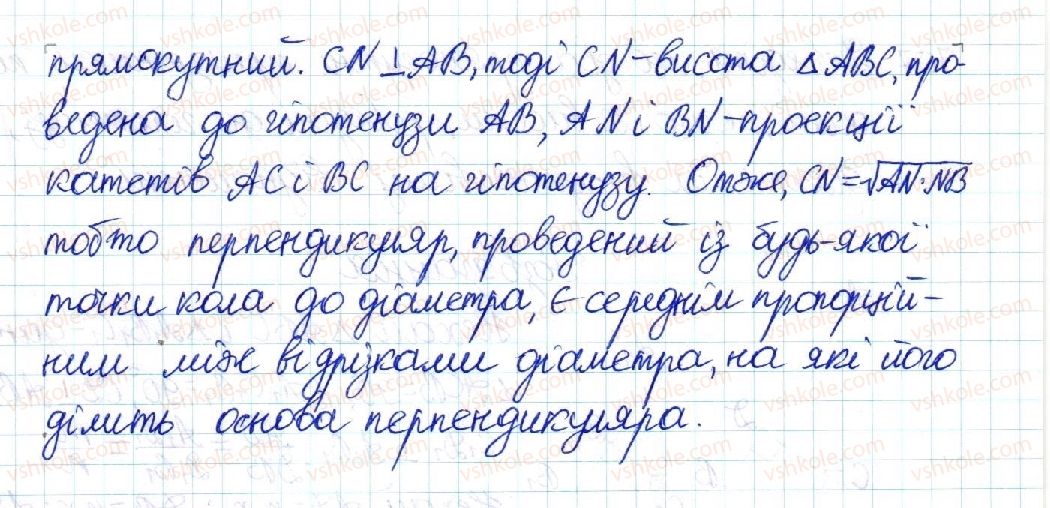 прямокутний. CN⊥AB, тоді CN-висота △ABC, про-
ведена до гіпотенузи AB, AN і BN-проекції
катетів AC і BC на гіпотенузу. Отже, CN=√AN·NB
тобто перпендикуляр, проведений із будь-якої
точки кола до діаметра, є середнім пропорцій-
ним між відрізками діаметра, на які його
ділить основа перпендикуляра.